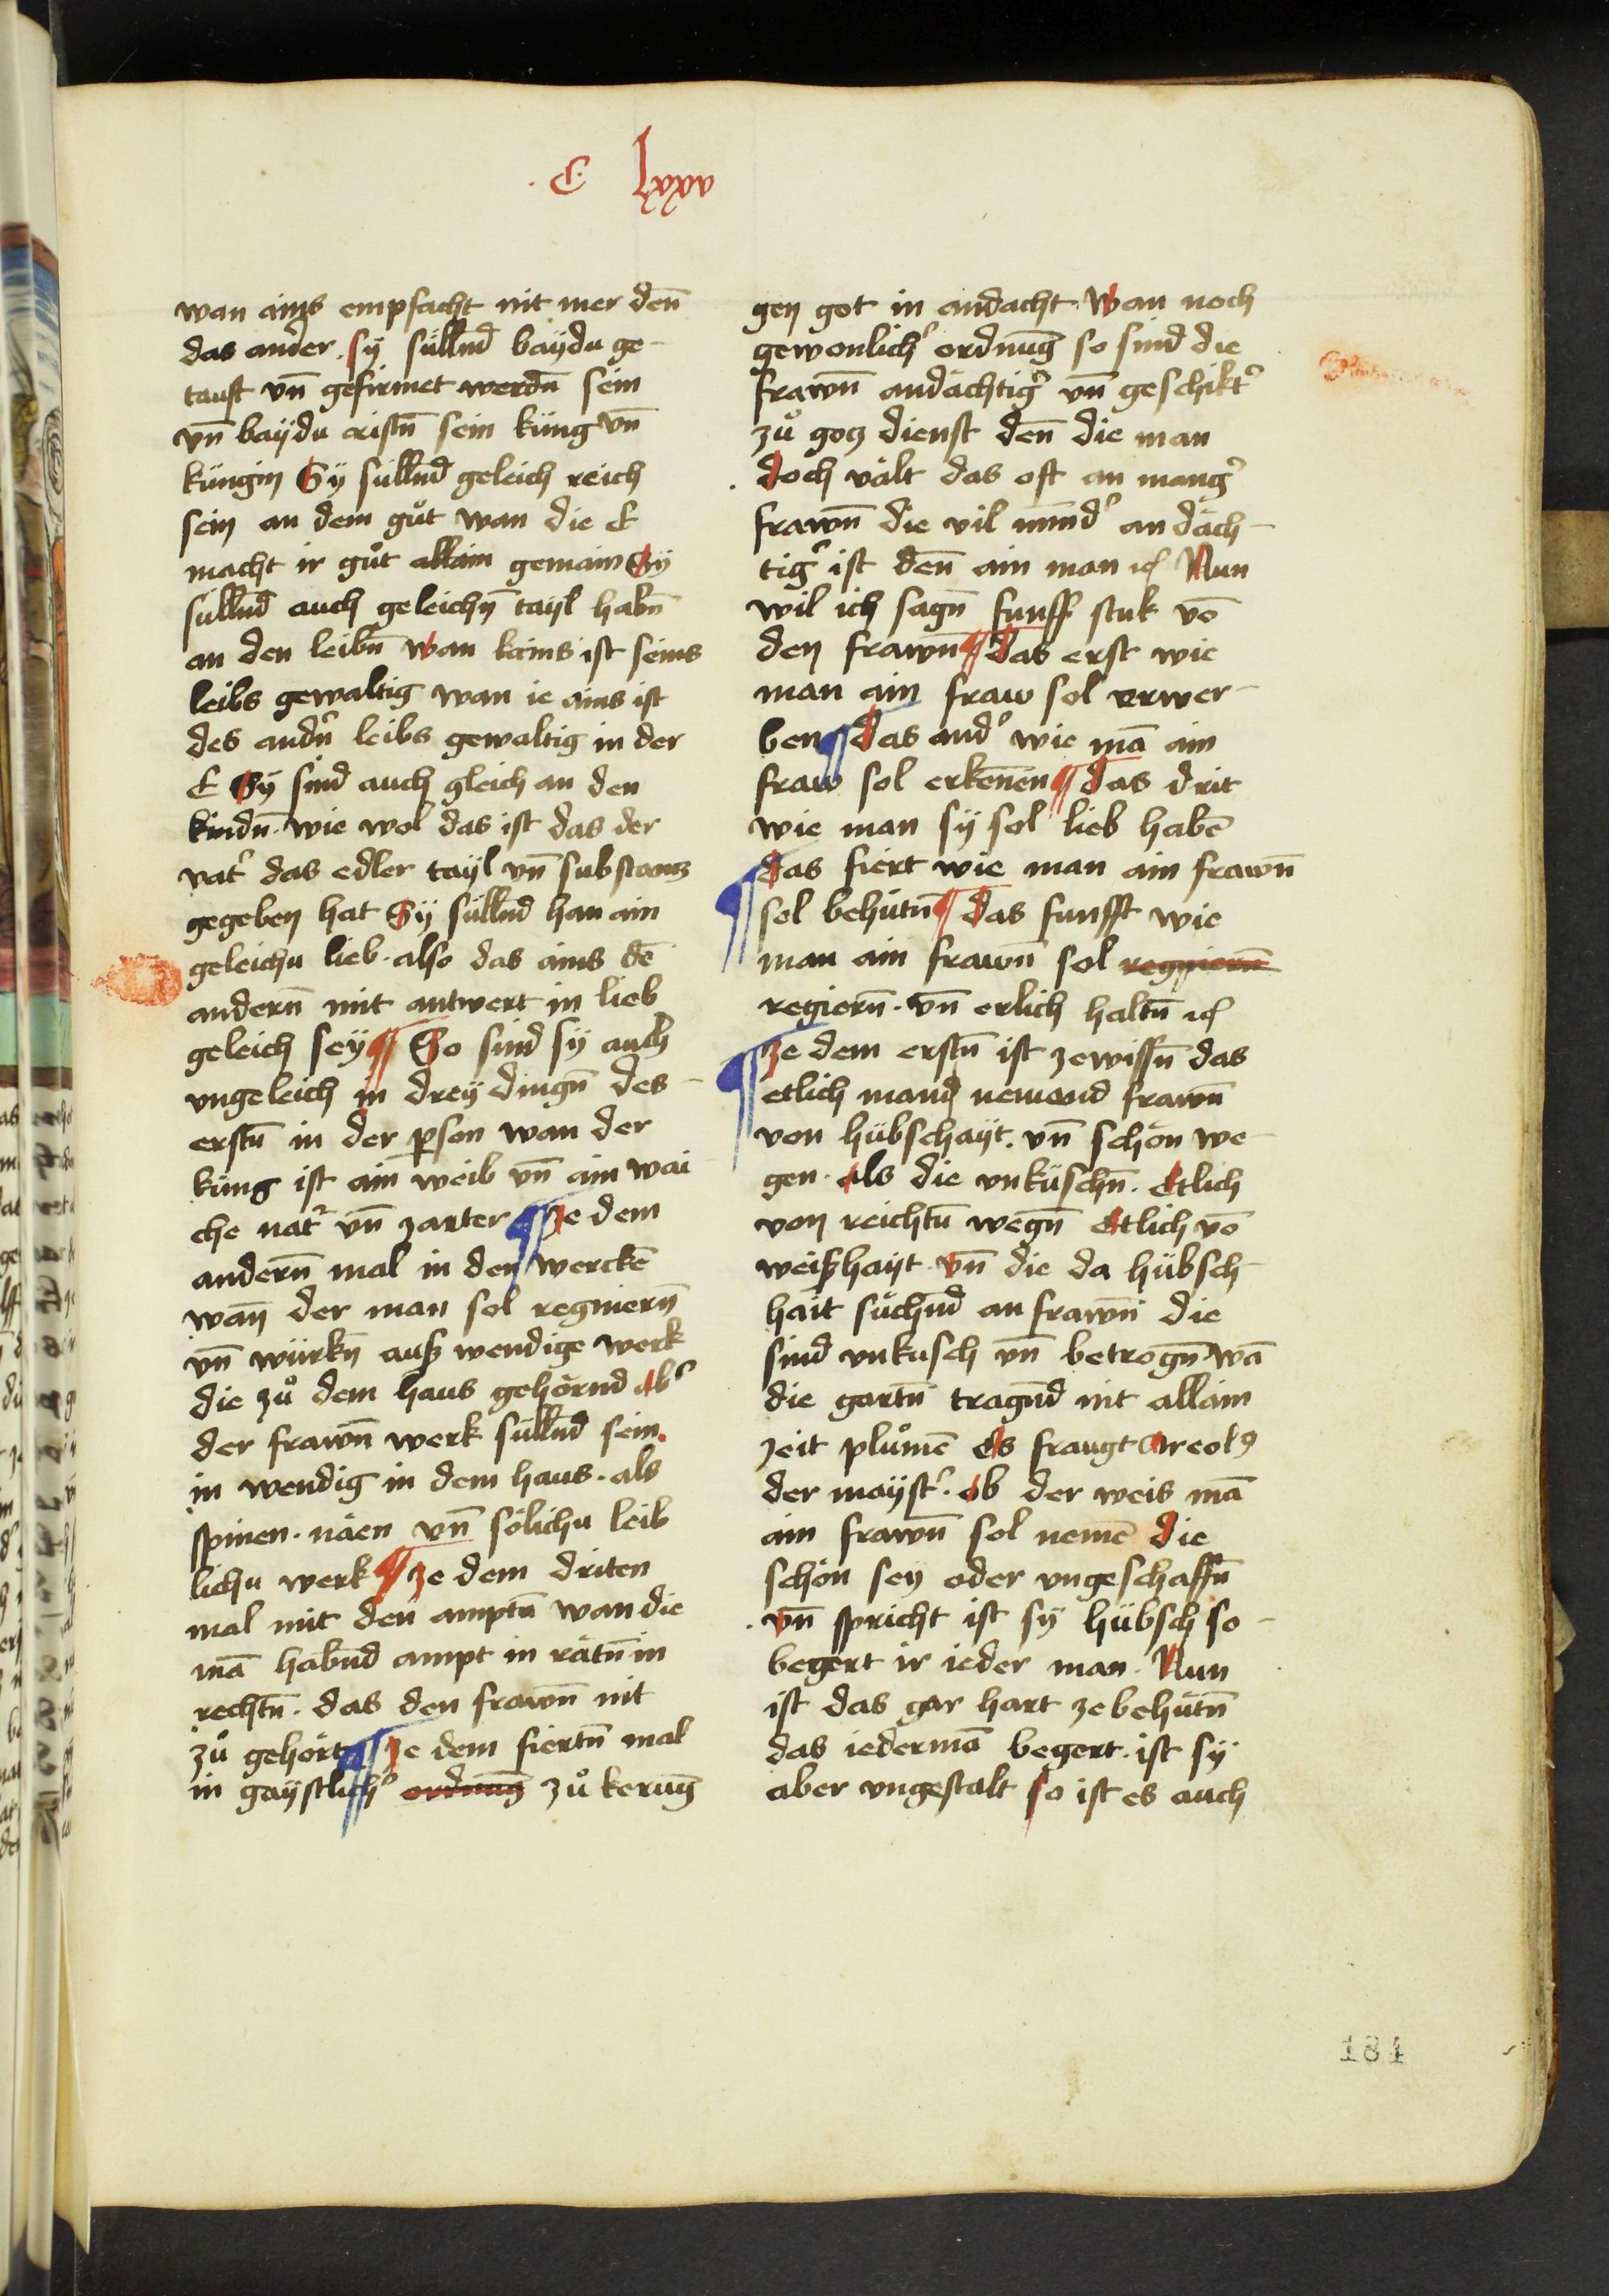 .C. lxxv
wan ains empfacht nit mer den̄
das ander. sy süllnd baydu ge-
tauft vn̄ gefirmet werdn̄ sein
vn̄ baydu cristn̄ sein küng vn̄
küngin Sy süllnd geleich reich
sein an dem gůt wan die E
macht ir gůt allain gemain Sy
süllnd auch geleichn̄ tayl habn̄
an den leibn̄ wan kains ist seins
leibs gewaltig wan ie ains ist
des andn̄ leibs gewaltig in der
E Sy sind auch gleich an den
kindn̄. wie wol das ist das der
vat͛ das edler tayl vn̄ substanz
gegeben hat Sy süllnd han ain
geleichu lieb. also das ains dē
andern̄ mit antwert in lieb
geleich sey ¶ So sind sy auch
vngeleich in drey dingn̄ des-
erstn̄ in der ꝑson wan der
küng ist ain weib vn̄ ain wai
che nat͛ vn̄ zarter ¶ Ze dem
andern̄ mal in den werckē
wan̄ der man sol regniern̄
vn̄ würkn̄ auß wendige werk
die zů dem haus gehörnd ab͛
der frawn̄ werk süllnd sein.
in wendig in dem haus. als
spinen. näen vn̄ sölichu leib
lichu werk ¶ Ze dem driten
mal mit den amptn̄ wan die
mā habnd ampt in rätn̄ in
rechtn̄. das den frawn̄ nit
zů gehört ¶ Ze dem fiertn̄ mal
in gaystlich͛ ordnung zů kerung
gen got in andacht. Wan noch
gewonlich͛ ordnung so sind die
frawn̄ andächtig͛ vn̄ geschikt͛
zů gocz dienst den̄ die man
. doch vält das oft an mang͛
frawn̄ die vil mind͛ an däch-
tig͛ ist den̄ ain man ꝛc̄ Nun
wil ich sagn̄ funff stuk vō
den frawn̄ ¶ das erst wie
man ain fraw sol erwer-
ben ¶ das and͛ wie mā ain
fraw sol erkennen ¶ das drit
wie man sy sol lieb habē
¶ das fiert wie man ain frawn̄
sol behütn̄ ¶ das funfft wie
man ain frawn̄ sol regniern̄
regiern̄. vn̄ erlich haltn̄ ꝛc̄
¶ Ze dem erstn̄ ist zewissn̄ das
etlich mand nemand frawn̄
von hübschayt. vn̄ schön we-
gen. als die vnküschn̄. Etlich
von reichtū wegn̄ Etlich vō
weißhayt. vn̄ die da hübsch-
hait süchnd an frawn̄ die
sind vnkusch vn̄ betrogn̄. wā
die gartn̄ tragnd nit allain
zeit plůmē Es fraugt Areolꝰ
der mayst͛. ob der weis mā
ain frawn̄ sol nemē die
schön sey oder vngeschaffn̄
. vn̄ spricht ist sy hübsch so-
begert ir ieder man. Nun
ist das gar hart ze behütn̄
das iedermā begert. ist sy
aber vngestalt so ist es auch
184